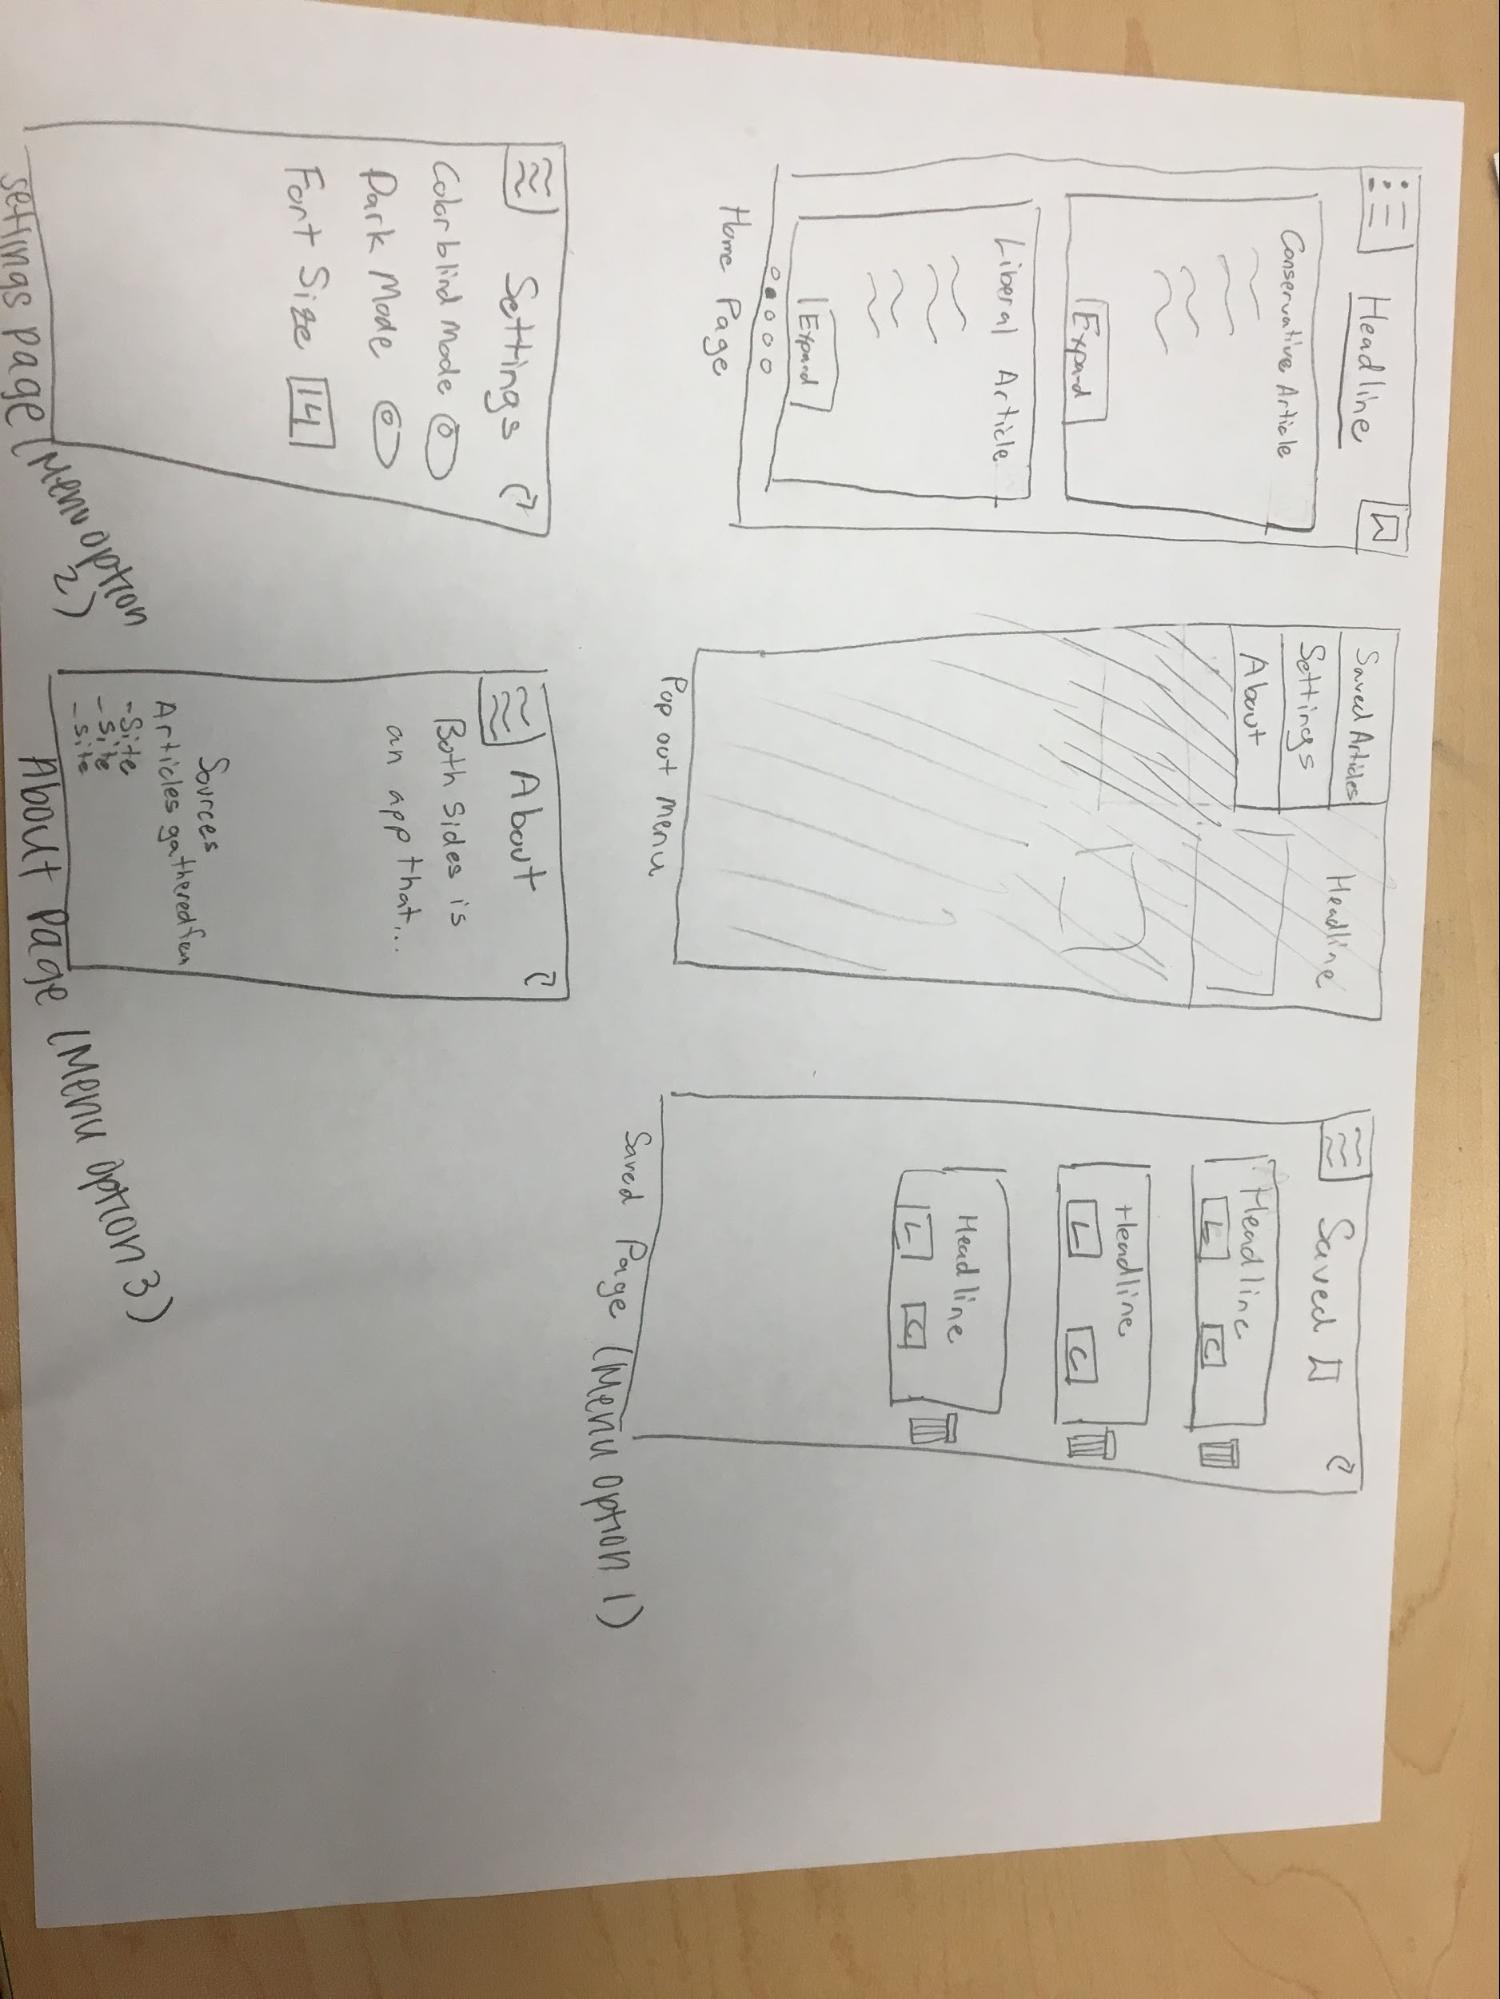 Headline
Conservative Article
Expand
Liberal Article
Expand
Home Page
Saved Articles
Settings
About
Headline
Pop out Menu
Saved
Headline
L C
Headline
L C
Headline
L C
Saved Page (Menu option 1)
Settings
Colorblind Mode
Dark Mode
Font Size 14
settings page (Menu option
2)
About
Both Sides is
an app that...
Sources
Articles gathered from
- Site
- Site
- Site
About Page (Menu option 3)